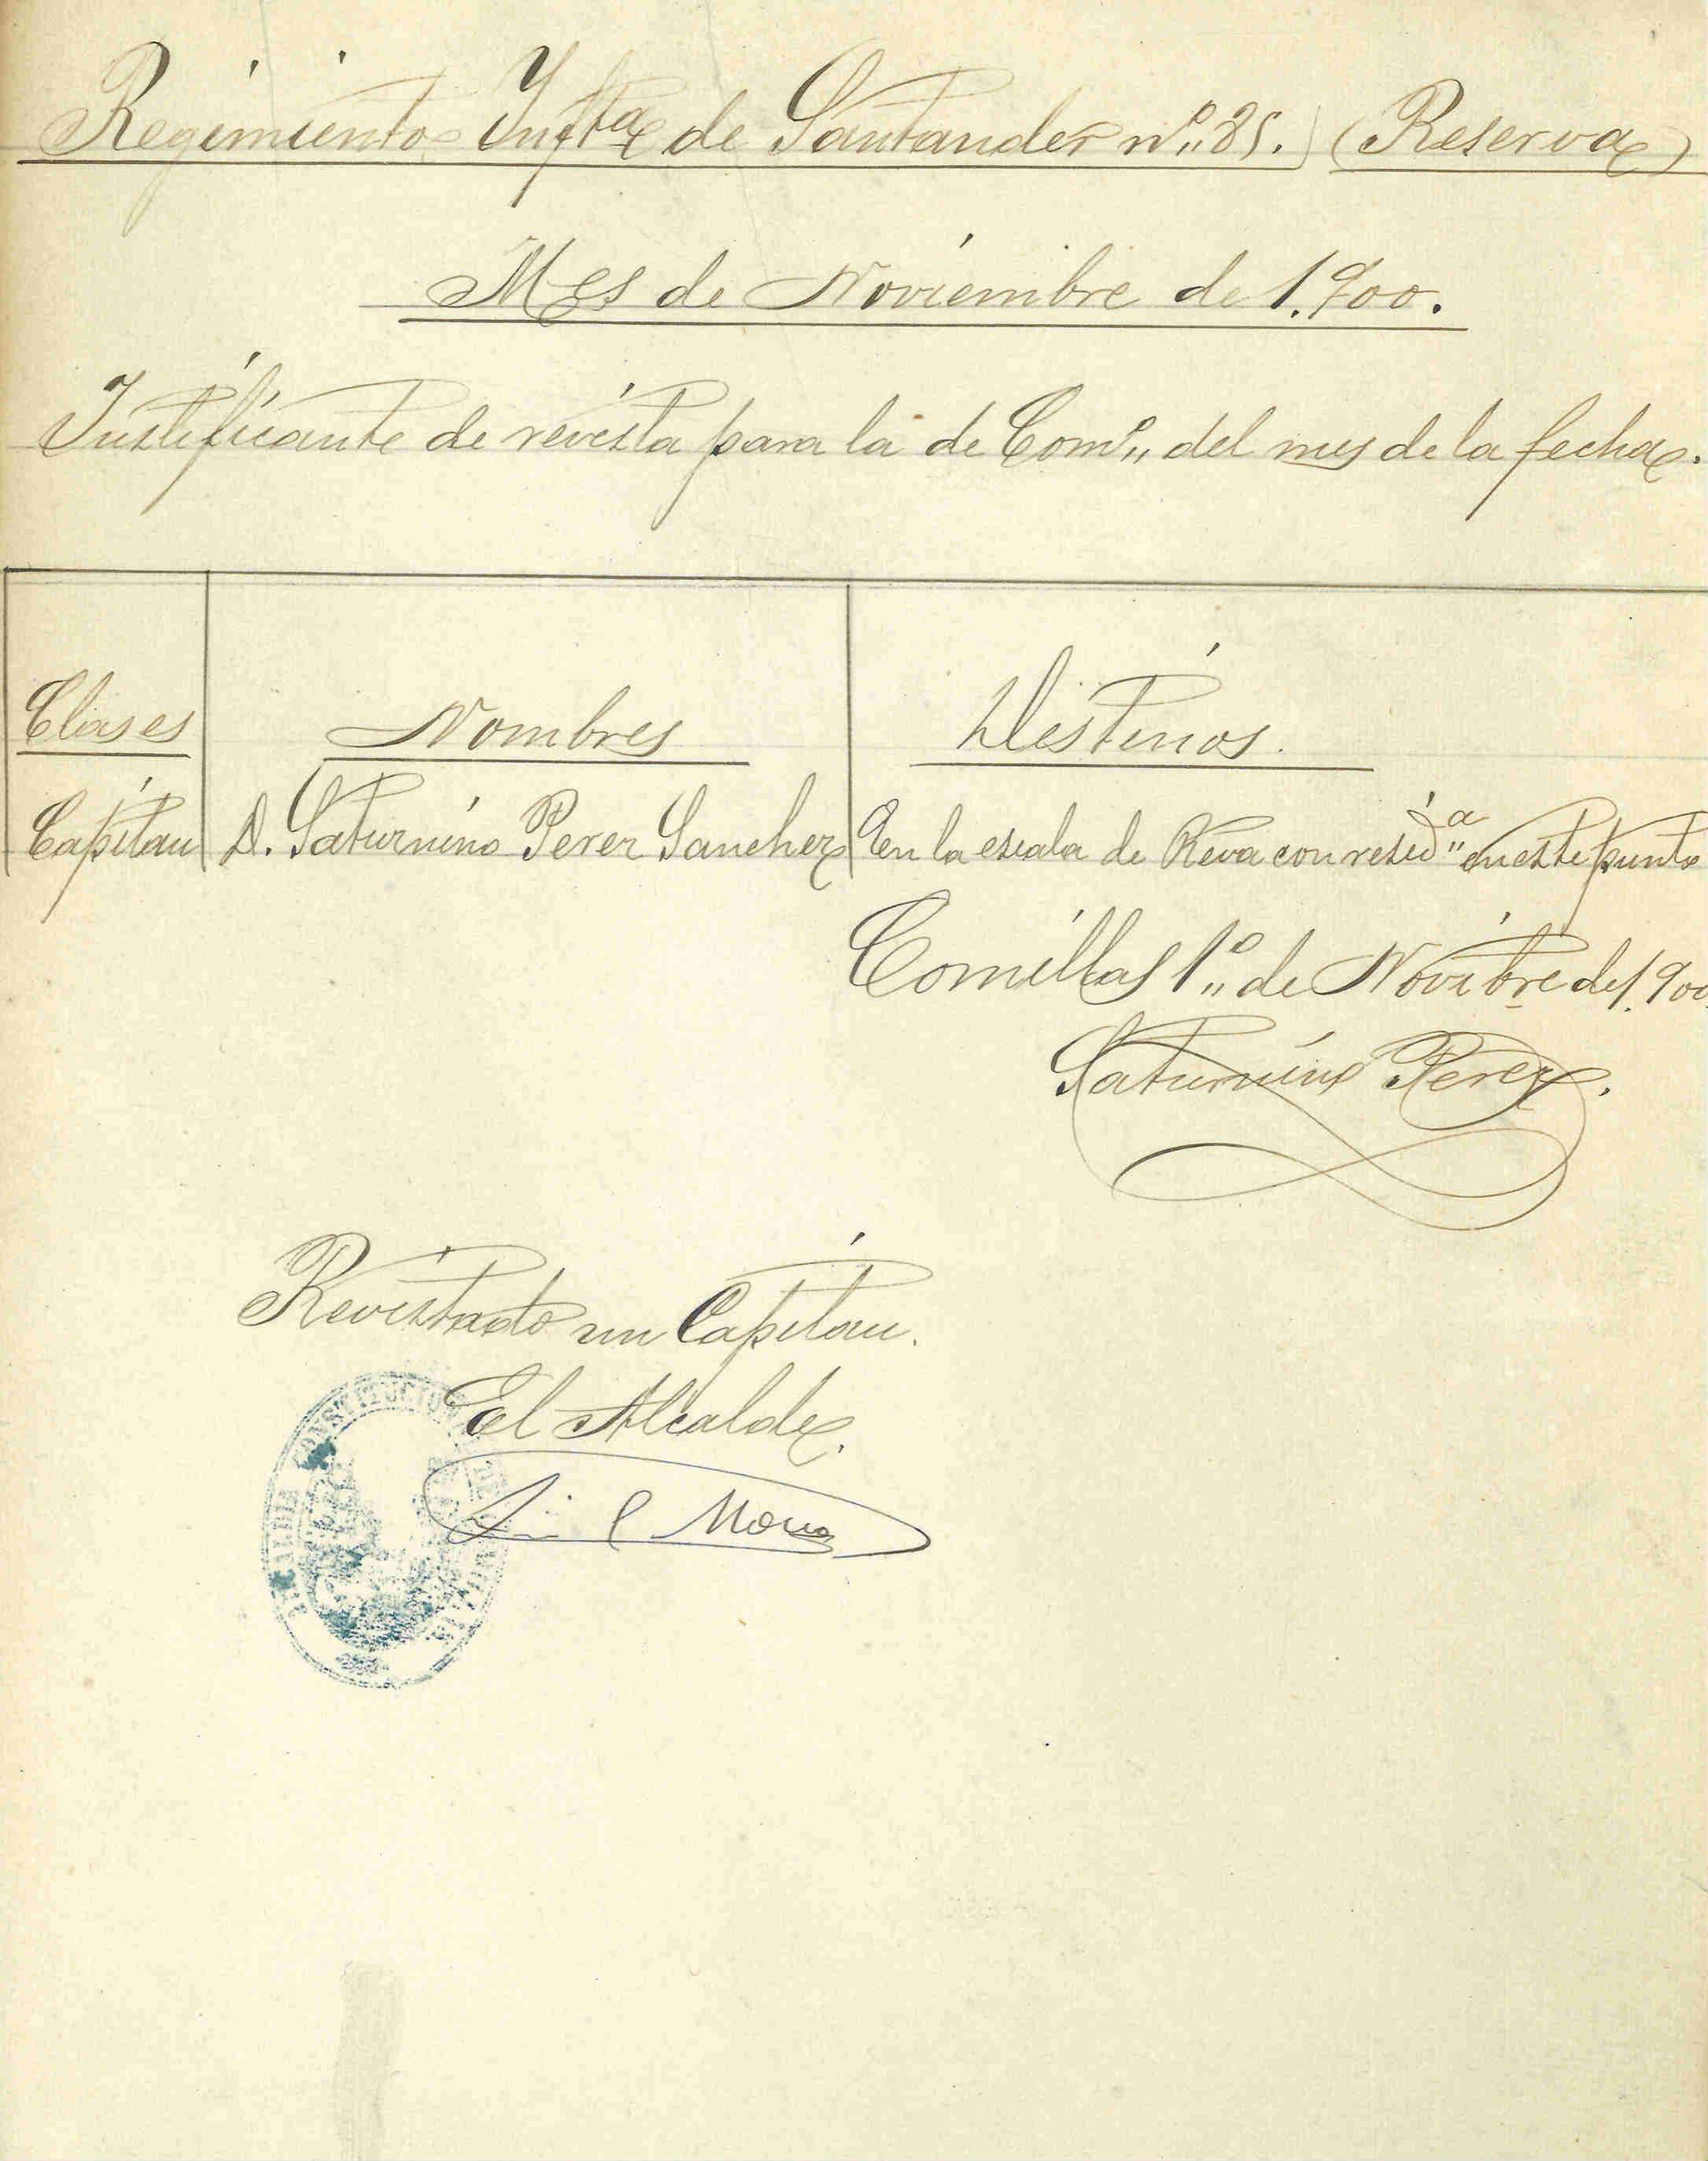 Regimiento Ynftª de Santander nº 85. (Reserva)
Mes de Noviembre de 1.900.
Justificante de revista para la de Comº del mes de la fecha.
Clases Nombres Destinos.
Capitan D. Saturnino Perez Sanchez En la escala de Rva con residª en este punto
Comillas 1º de Novibre de 1.900
Saturnino Perez.
Revistado un Capitan.
El Alcalde.
CONSTITUCIO